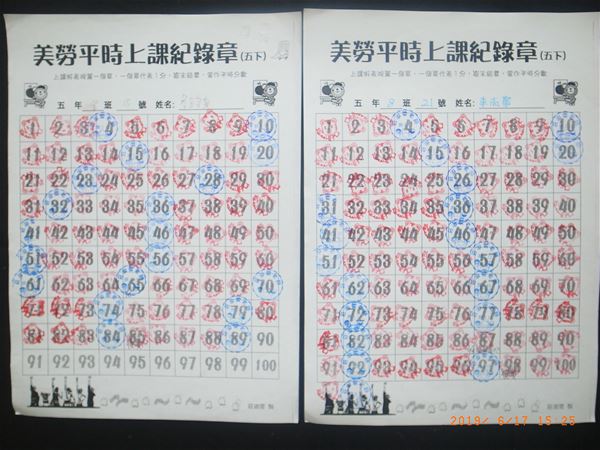 美勞平時上課紀錄章(五下)
五 年 班 號 姓名:
1 2 3 4 5 6 7 8 9 10
11 12 13 14 15 16 17 18 19 20
21 22 23 24 25 26 27 28 29 30
31 32 33 34 35 36 37 38 39 40
41 42 43 44 45 46 47 48 49 50
51 52 53 54 55 56 57 58 59 60
61 62 63 64 65 66 67 68 69 70
71 72 73 74 75 76 77 78 79 80
81 82 83 84 85 86 87 88 89 90
91 92 93 94 95 96 97 98 99 100
美勞平時上課紀錄章(五下)
五 年 8 班 21 號 姓名:
1 2 3 4 5 6 7 8 9 10
11 12 13 14 15 16 17 18 19 20
21 22 23 24 25 26 27 28 29 30
31 32 33 34 35 36 37 38 39 40
41 42 43 44 45 46 47 48 49 50
51 52 53 54 55 56 57 58 59 60
61 62 63 64 65 66 67 68 69 70
71 72 73 74 75 76 77 78 79 80
81 82 83 84 85 86 87 88 89 90
91 92 93 94 95 96 97 98 99 100
2019/ 6/17 15:25